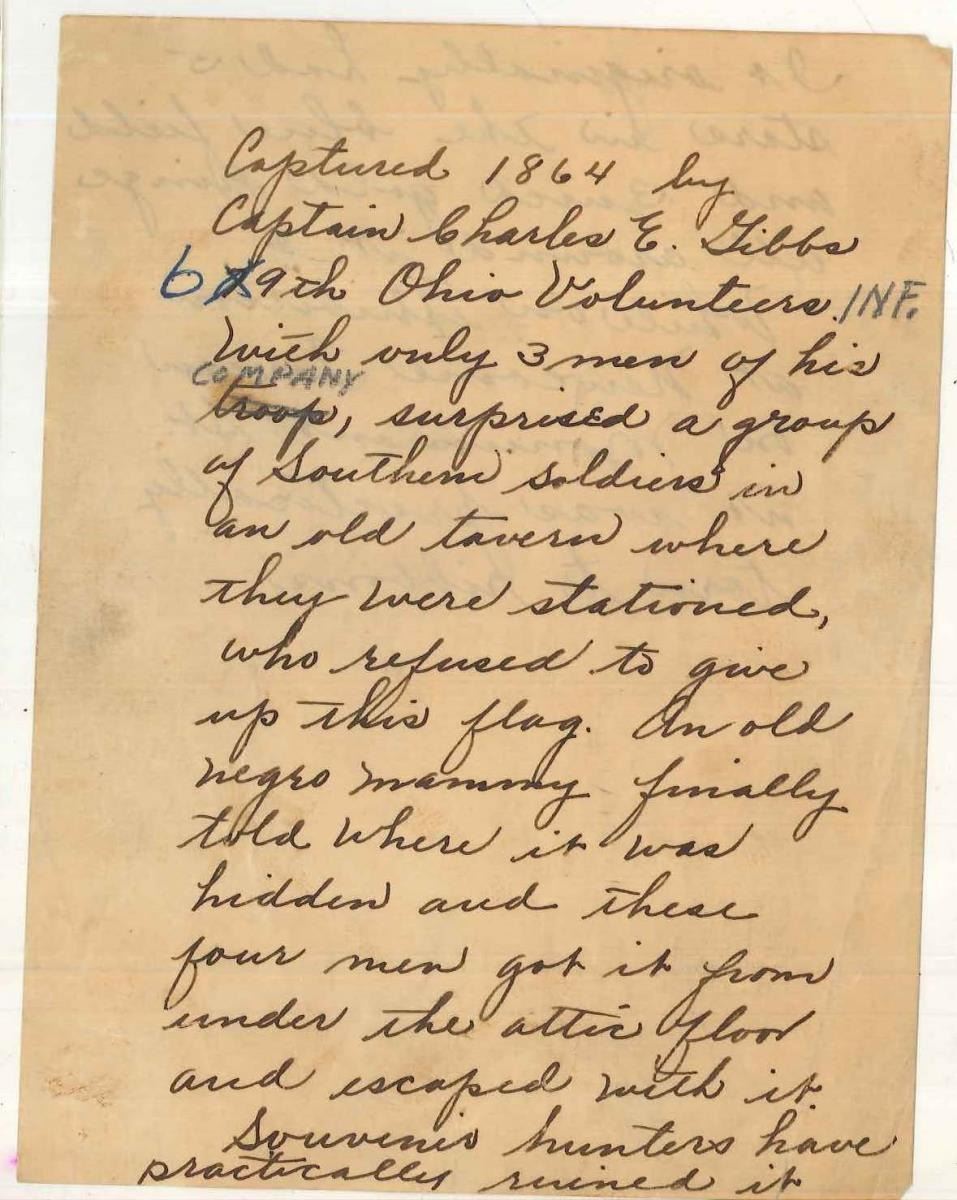 Captured 1864 by
Captain Charles E. Gibbs
69th Ohio Volunteers. INF.
With only 3 men of his
COMPANY
troop, surprised a group
of Southern soldiers in
an old tavern where
they were stationed,
who refused to give
up this flag. An old
negro mammy finally
told where it was
hidden and these
four men got it from
under the attic floor
and escaped with it.
Souvenir hunters have
practically ruined it